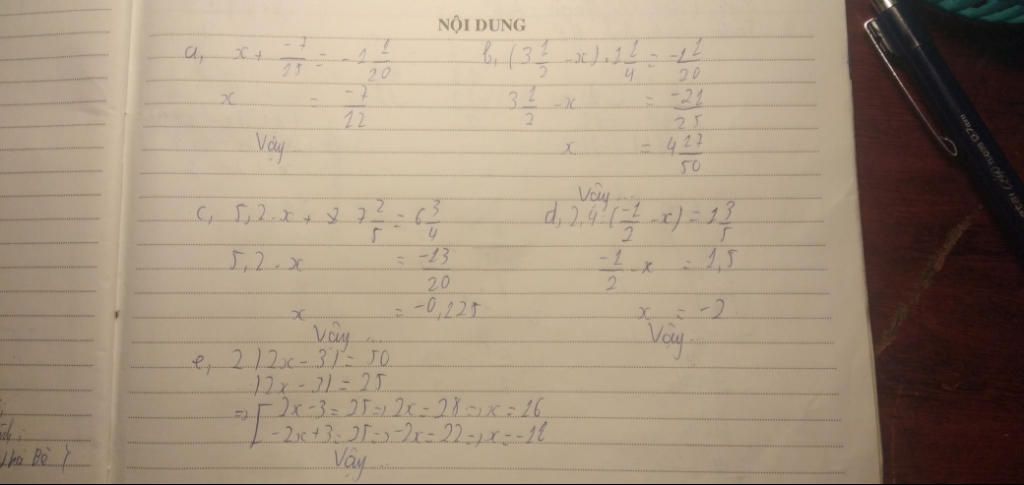 NỘI DUNG
a, x + -7/15 = -1 1/20
x = -7/12
Vậy
b, (3 1/2 - x) . 1 1/4 = -1 1/20
3 1/2 - x = -21/25
x = 4 17/50
Vậy ...
c, 5,2 . x + 7 2/5 = 6 3/4
5,2 . x = -13/20
x = -0,125
Vậy ...
d, 2,4 : (-1/2 - x) = 1 3/5
-1/2 - x = 1,5
x = -2
Vậy ...
e, 2 |2x - 3| = 50
|2x - 3| = 25
=> [ 2x - 3 = 25 => 2x = 28 => x = 16
-2x + 3 = 25 => -2x = 22 => x = -11
Vậy ...
0.7mm